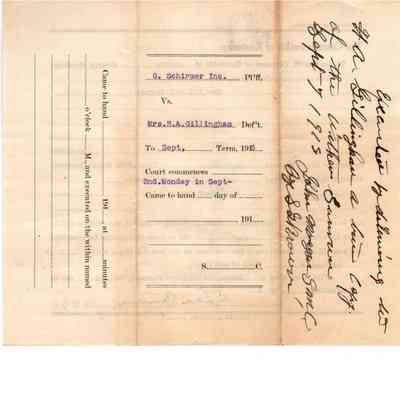 Came to hand 191 at minutes
o'clock M., and executed on the within named
G. Schirmer Inc. Pl'ff.
Vs.
Mrs.H.A.Gillingham Def't.
To Sept, Term, 1915
Court commences
2nd.Monday in Sept-
Came to hand day of
191
S. C.
Executed by delivering to
H A Gillingham a true Copy
of the within Summons
Sept 7 1915